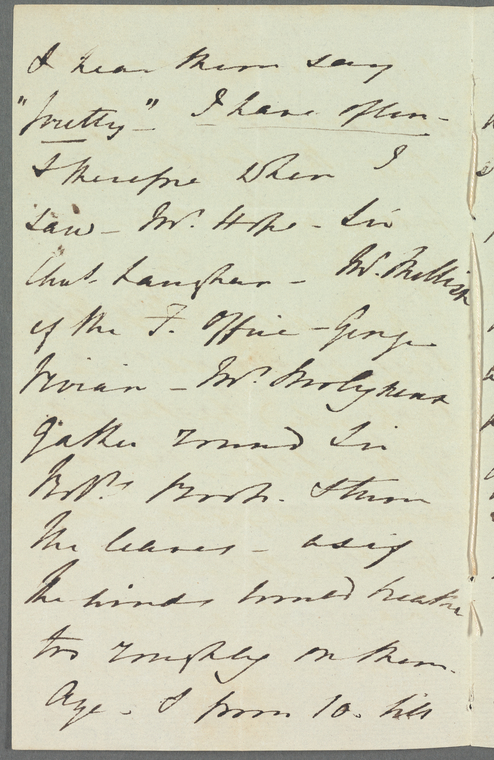 I hear them say
"pretty" - I have often -
& therefore when I
saw - Mr. Hope - Sir
Chas. Vaughan - Mr. Mellish
of the F. Office - George
Vivian - Mr. Molyneux
gather round Sir
Robt's Book - & turn
the leaves - as if
the winds would breathe
too roughly on them -
Aye - & from 10. till